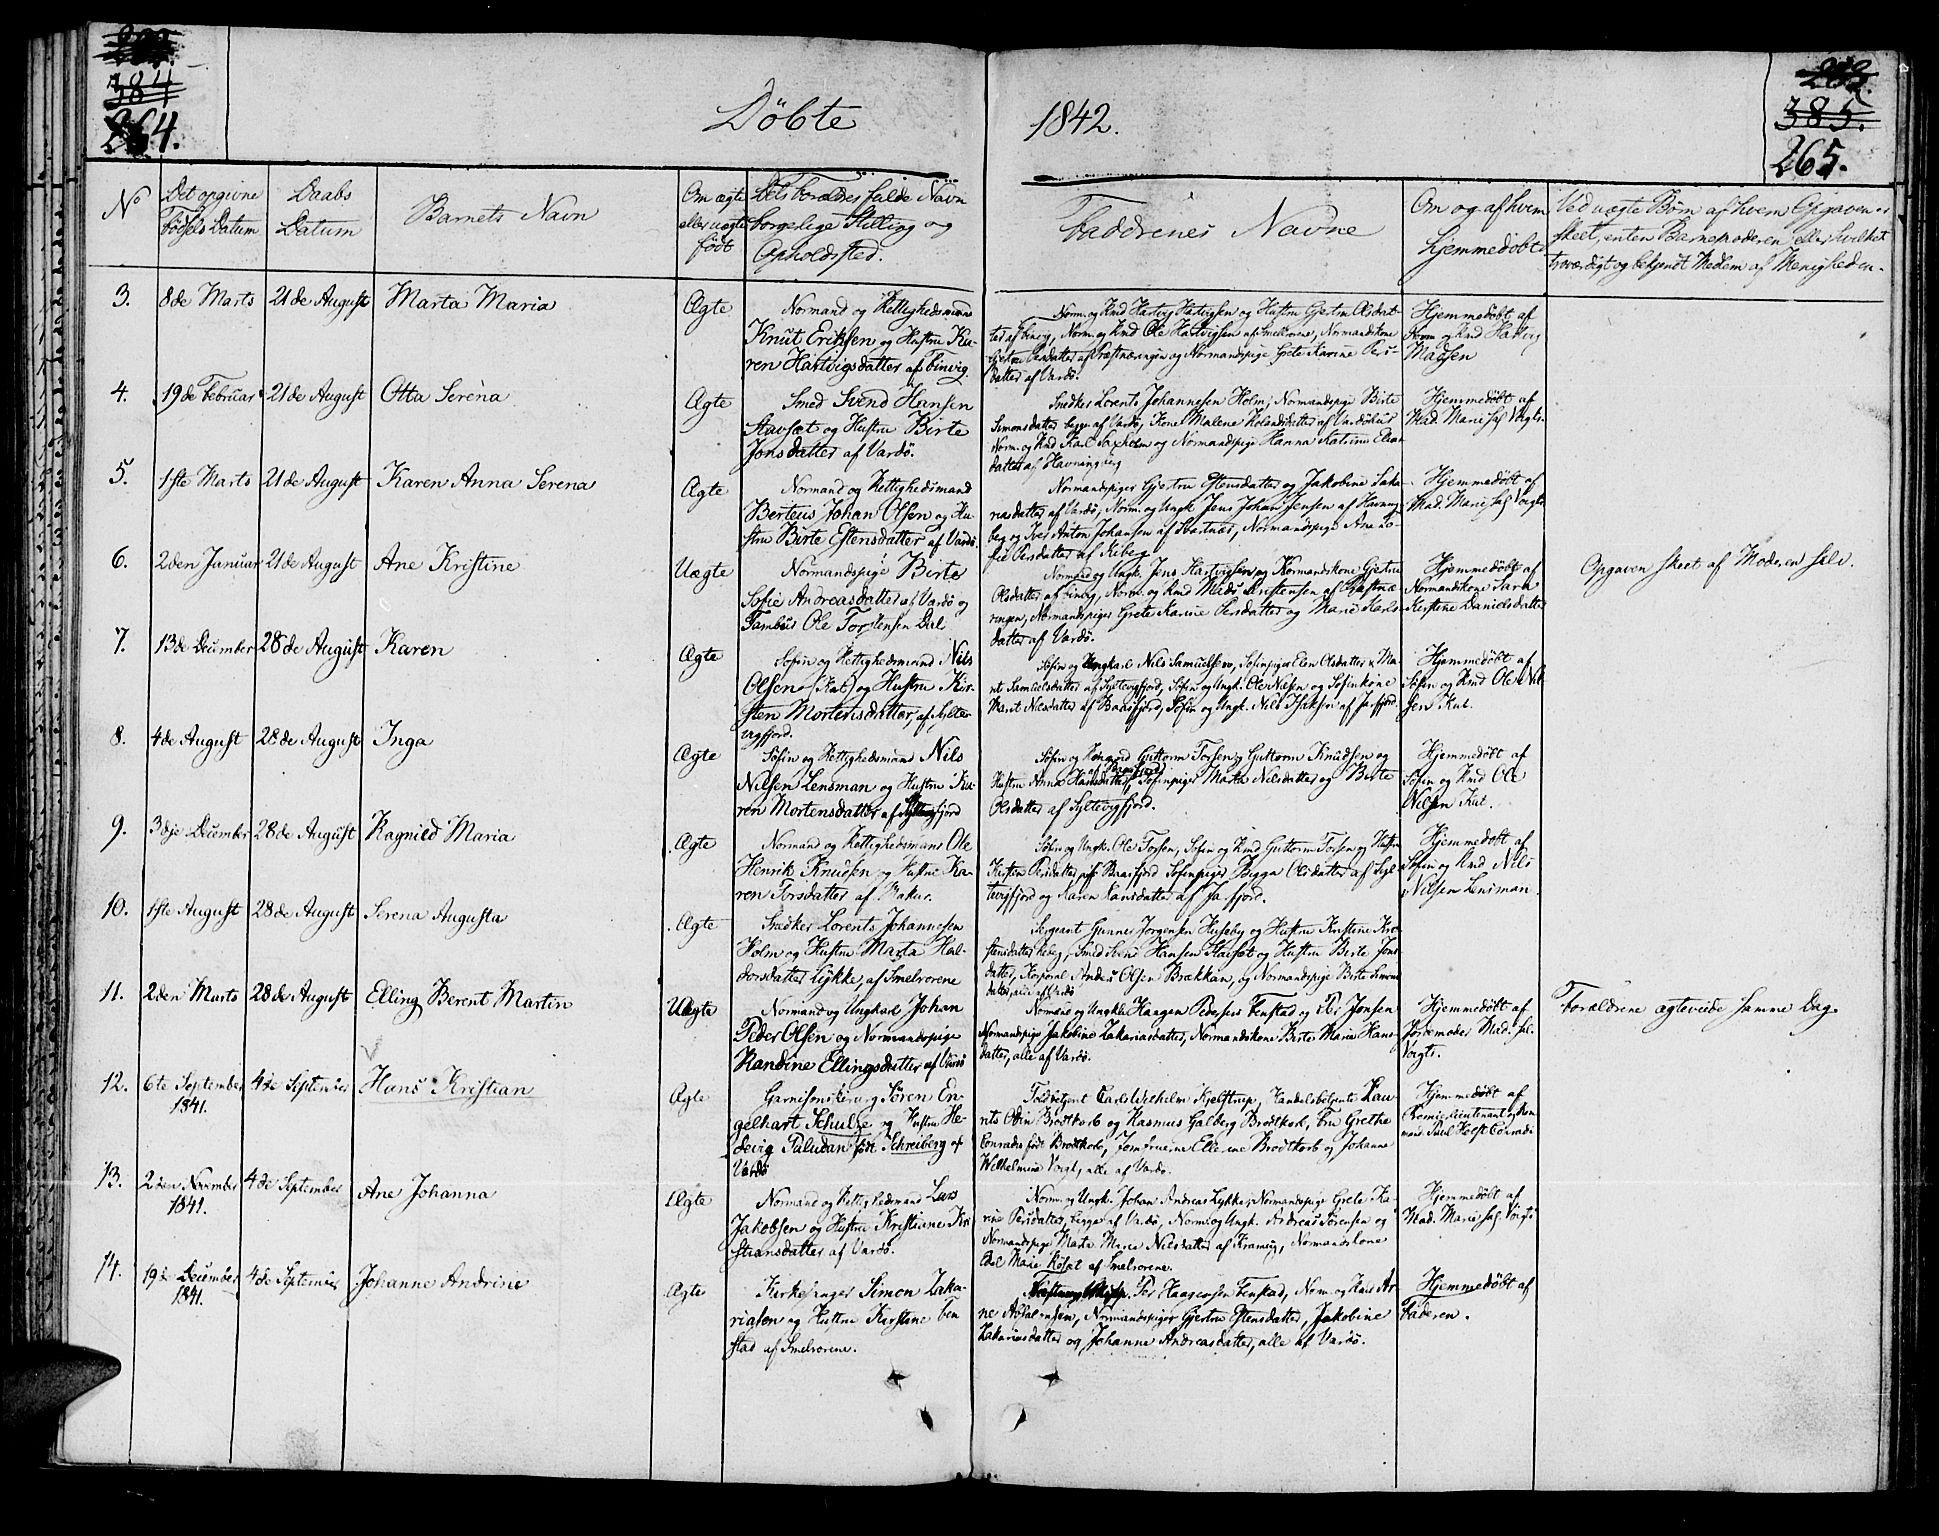 384
264.
Döbte
1842.
385.
265.
No
Det opgivne
Födsels Datum
Daabs
Datum
Barnets Navn
Om ægte
eller uægte
född
Dets Forældres fulde Navn
borgerlige Stilling og
Opholdssted.
Faddrenes Navne
Om og af hvem
hjemmedöbt
Ved uægte Börn af hvem Opgaven er
skeet, enten Barnemoderen eller hvilket
troværdigt og bekjendt Medlem af Menigheden.
3.
8de Marts
21de August
Marta Maria
Ægte
Normand og Rettighedsmand
Knut Eriksen og Hustru Ka-
ren Hartvigsdatter af Finvig.
Norm. og Kmd Hartvig Hartvigsen og Hustru Gjertru Olsdat-
ter af Finvig, Norm. og Kmd Ole Hartvigsen af Smelrorene, Normandskone
Gjertru Persdatter af Præstnæringen og Normandspige Grete Karine Pers-
datter af Vardö.
Hjemmedöbt af
Norm og Kmd Hartvig
Madsen
4.
19de Februar
21de August
Otta Serena
Ægte
Smed Svend Hansen
Stavsæt og Hustru Birte
Jonsdatter af Vardö.
Snedker Lorents Johannesen Holm, Normandspige Birte
Simonsdatter begge af Vardö, Kone Malene Rolandsdatter af Vardöhus
Norm. og Kmd Karl Saxholm og Normandspige Hanna Katrine Elias
datter af Havningberg
Hjemmedöbt af
Mad. Marie sal. Voigts.
5.
1ste Marts
21de August
Karen Anna Serena
Ægte
Normand og Rettighedsmand
Berteus Johan Olsen og Hu-
stru Birte Estensdatter af Vardö.
Normandspiger Gjertru Estensdatter og Jakobine Saka-
riasdatter af Vardö, Norm. og Ungk Jens Johan Jensen af Havning-
berg og Iver Anton Johansen af Svartnæs, Normandspige Ane So-
fie Persdatter af Kiberg
Hjemmedöbt af
Mad. Marie sal Voigts
6.
2den Januar
21de August
Ane Kristine
Uægte
Normandspige Birte
Sofie Andreasdatter af Vardö og
Tambur Ole Torstensen Dal
Normand og Ungk. Jens Hartvigsen og Normandskone Gjertru
Olsdatter af Finvig, Norm. og Kmd Mads Kristensen af Præstnæ
ringen, Normandspiger Grete Karine Persdatter og Marie Karls
datter af Vardö.
Hjemmedöbt af
Normandskone Sara
Kirstine Danielsdatter
Opgaven skeet af Moderen selv.
7.
13de December
28de August
Karen
Ægte
Söfin og Rettighedsmand Nils
Olsen (Kut) og Hustru Kir-
sten Mortensdatter, af Sylte-
vigfjord.
Söfin og Ungkarl Nils Samuelsen, Söfinpiger Elen Olsdatter & Ma-
rit Samuelsdatter af Syltevigfjord, Söfin og Ungk. Ole Nilsen og Söfinkone
Marit Nilsdatter af Baasfjord, Söfin og Ungk. Nils Isaksen af Jarfjord.
Hjemmedöbt af
Söfin og Kmd Ole Nil-
sen Kut.
8.
4de August
28de August
Inga
Ægte
Söfin og Rettighedsmand Nils
Nilsen Lensman og Hustru Ka-
ren Mortensdatter af Syltevigfjord
Söfin og Kongmd Guttorm Torsen, Guttorm Knudsen og
Hustru Anna Hansdatter, Söfinpiger Marta Nilsdatter og Birte
Olsdatter af Syltevigfjord.
Hjemmedöbt af
Söfin og Kmd Ole
Nilsen Kut.
9.
3dje December
28de August
Ragnild Maria
Ægte
Normand og Rettighedsmand Ole
Henrik Knudsen og Hustru Ka-
ren Torsdatter af Makur.
Söfin og Ungk. Ole Torsen, Söfin og Kmd Guttorm Torsen og Hustru
Kirsten Persdatter af Baasfjord Söfinpiger Bigga Olsdatter af Syl-
tevigfjord og Karen Hansdatter af Jarfjord.
Hjemmedöbt af
Söfin og Kmd Nils
Nilsen Lensman.
10.
1ste August
28de August
Serena Augusta
Ægte
Snedker Lorents Johannesen
Holm og Hustru Marta Hal-
dorsdatter Lykke, af Smelrorene
Sergeant Gunner Jörgensen Huseby og Hustru Kirstine Kri-
stensdatter Keberg, Smed Svend Hansen Stavsæt og Hustru Birte Jons
datter, Korporal Anders Olsen Brækkan, og Normandspige Birte Simons
datter, alle af Vardö
11.
2den Marts
28de August
Elling Berent Martin
Uægte
Normand og Ungkarl Johan
Peder Olsen og Normandspige
Randine Ellingsdatter af Vardö
Normand og Ungkle Haagen Pedersen Fenstad og Per Jonsen
Normandspige Jakobine Zakariasdatter, Normandskone Birte Marie Hans
datter, alle af Vardö.
Hjemmedöbt af
Jordemoder Mad. sal.
Voigts.
Forældrene ægteviede samme Dag.
12.
6te September
1841.
4de September
Hans Kristian
Ægte
Garnisonskirurg Sören En-
gelhart Schulze og Hustru He-
devig Paludan föd Schreiberg af
Vardö
Toldbetjent Carl Wilhelm Kjelstrup, Handelsbetjente Lau-
rits Odin Brodtkorb og Rasmus Galberg Brodtkorb, Fru Grethe
Conradi född Brodtkorb, Jomfruerne Ellerine Brodtkorb og Johanne
Wilhelmine Voigt, alle af Vardö.
Hjemmedöbt af
Premierlieutenant og Kom
mand. Paul Heest Conradi
13.
2den November
1841.
4de September
Ane Johanna
Ægte
Normand og Rettighedsmand Lars
Jakobsen og Hustru Kristiane Kri
stiansdatter af Vardö.
Norm. og Ungk. Johan Andreas Lykke, Normandspige Grete Ka-
rine Persdatter, begge af Vardö, Norm. og Ungk. Andreas Sörensen og
Normandspige Marta Maria Nilsdatter af Kramvig, Normandskone
Edel Marie Röst af Smelrorene.
Hjemmedöbt af
Mad. Marie sal. Voigts
14.
19de December
1841.
4de September
Johanne Andrine
Ægte
Kirkesanger Simon Zaka-
riasen og Hustru Kirstine Fen
stad af Smelrorene.
Per Haagensen Fenstad, Norm. og Kmd Ar-
ne Absalonsen, Normandspiger Gjertru Estensdatter, Jakobine
Zakariasdatter og Johanne Andreasdatter, alle af Vardö.
Hjemmedöbt af
Faderen.